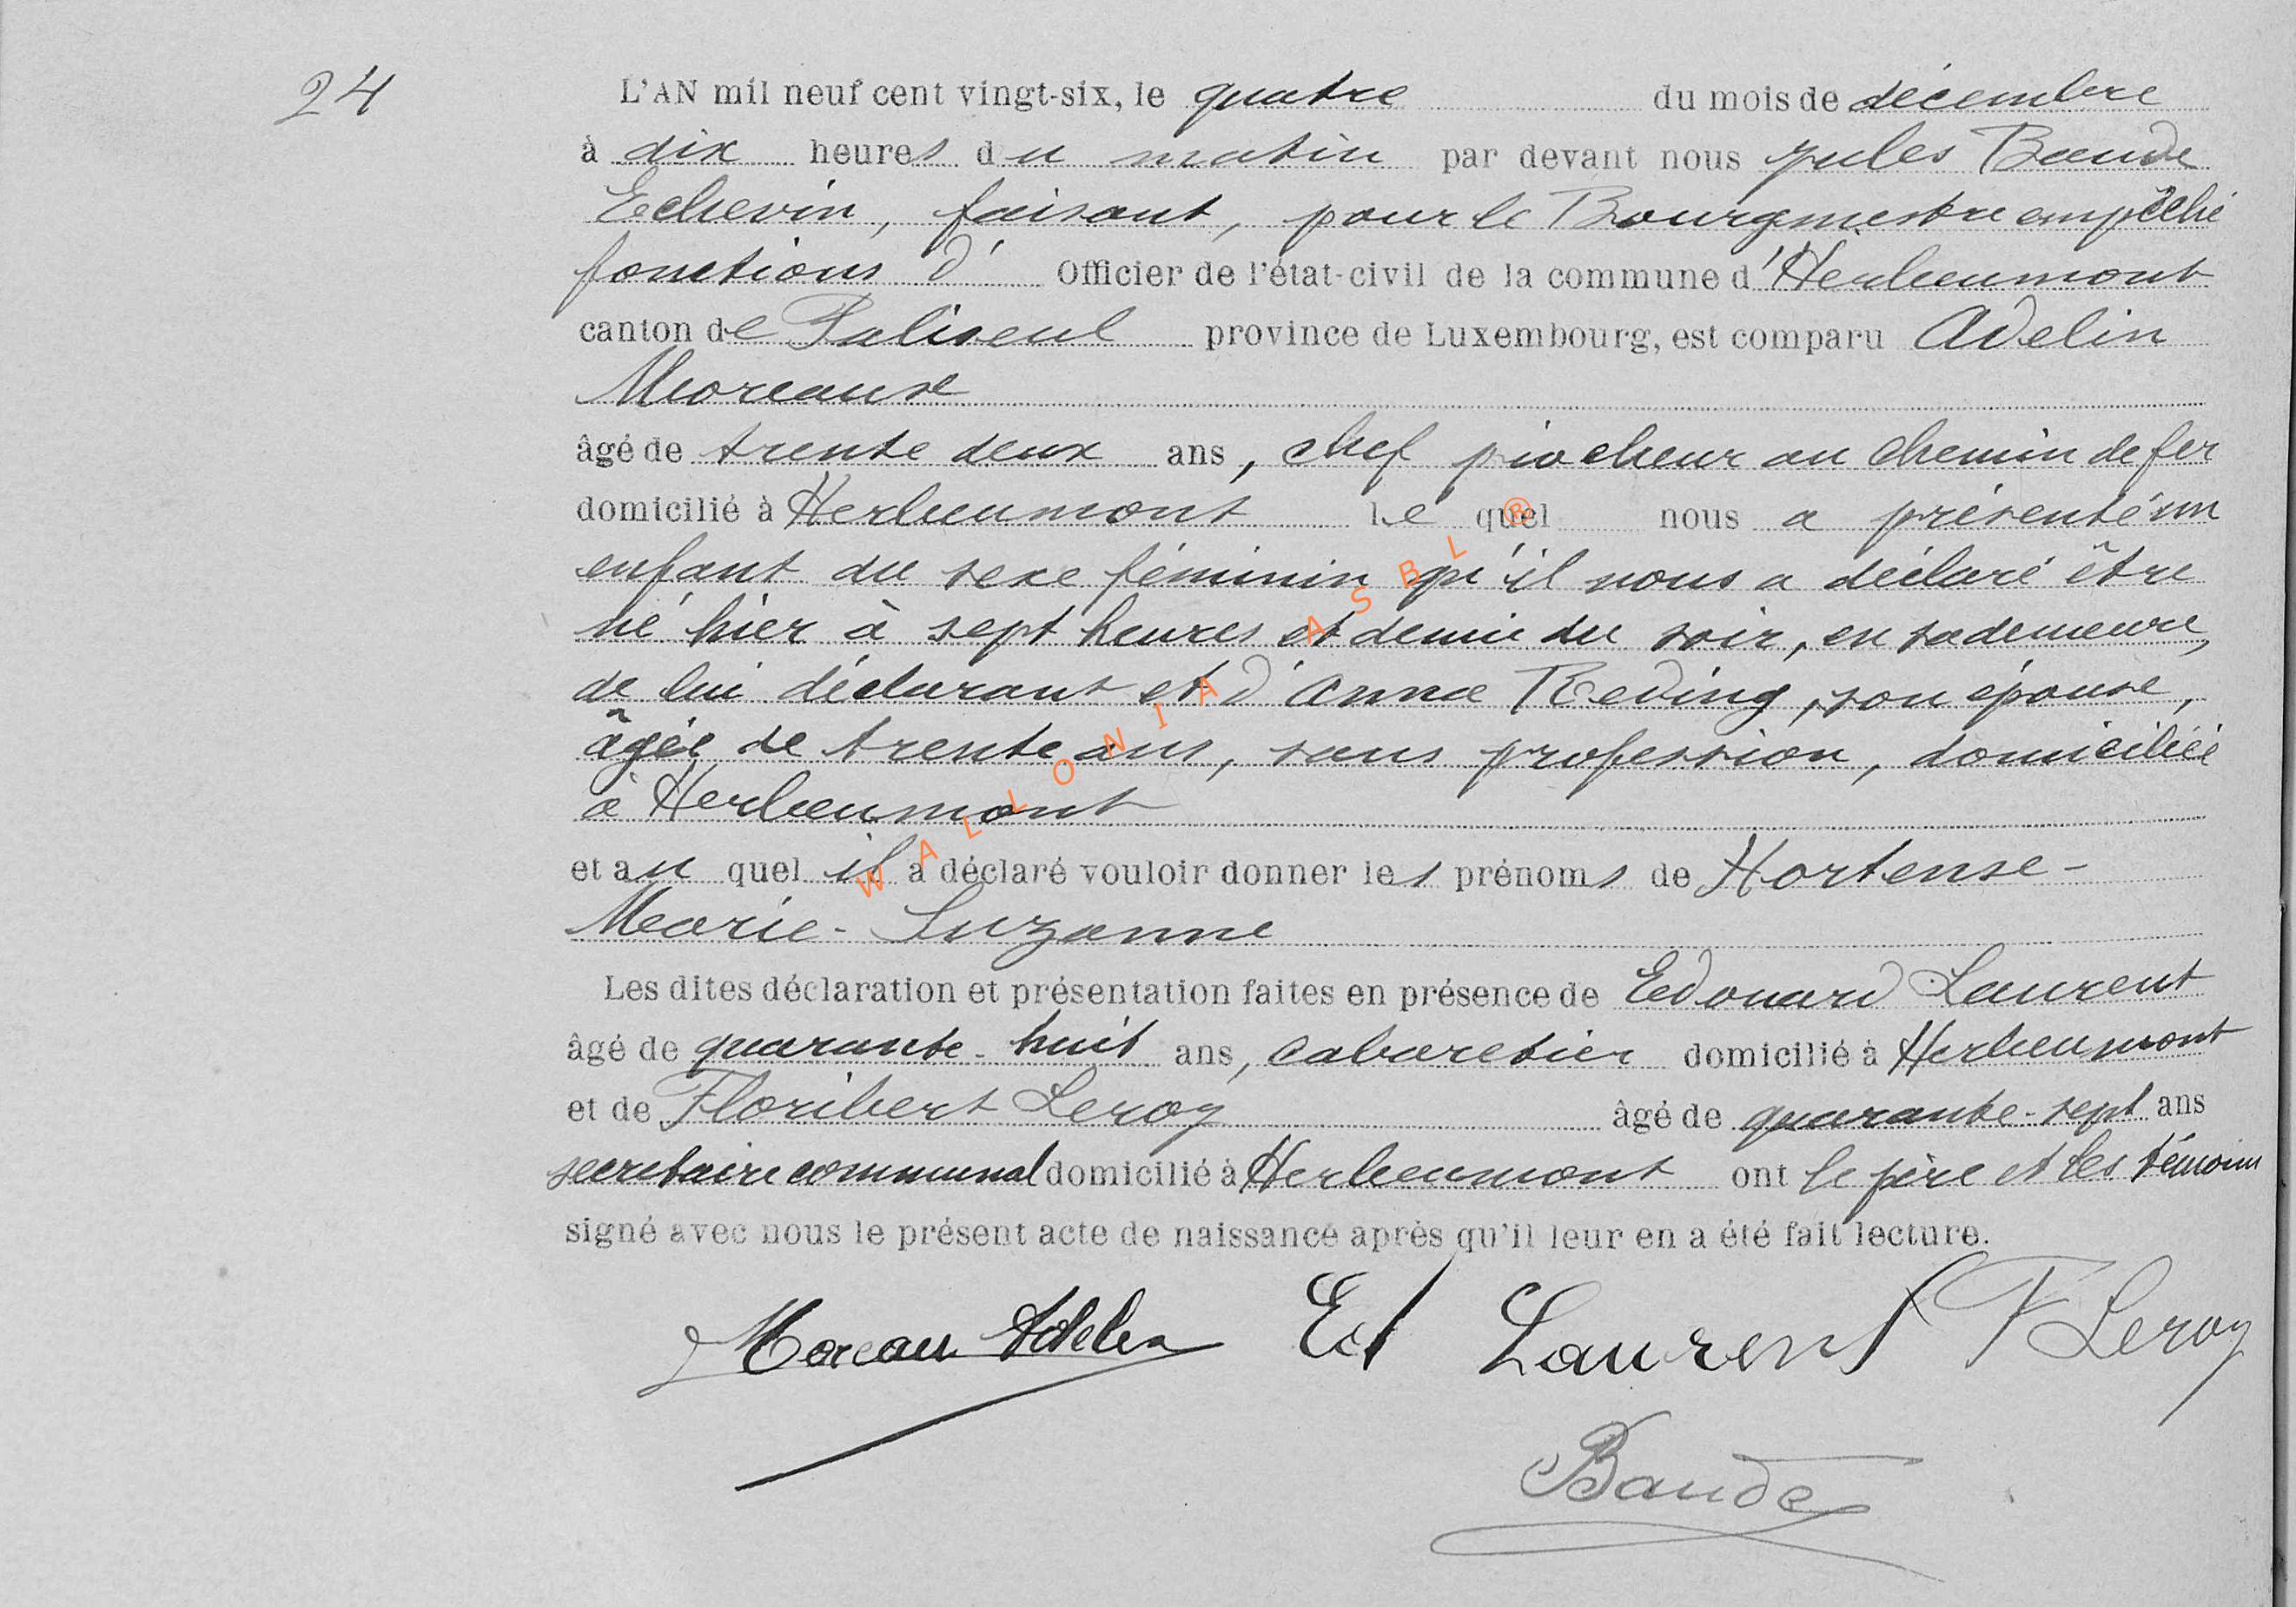 24
L'AN mil neuf cent vingt-six, le quatre du mois de décembre
à dix heures du matin par devant nous Jules Baude
Echevin, faisant, pour le Bourgmestre empêché
fonctions d' Officier de l'état-civil de la commune d'Herbeumont
canton de Paliseul province de Luxembourg, est comparu Adelin
Moreaux
âgé de trente deux ans, chef piocheur au chemin de fer
domicilié à Herbeumont le quel nous a présenté un
enfant du sexe féminin qu'il nous a déclaré être
né hier à sept heures et demie du soir, en sa demeure,
de lui déclarant et d'Anna Reding, son épouse,
âgée de trente ans, sans profession, domiciliée
à Herbeumont
et au quel il a déclaré vouloir donner les prénoms de Hortense-
Marie-Suzanne
Les dites déclaration et présentation faites en présence de Edouard Laurent
âgé de quarante-huit ans, cabaretier domicilié à Herbeumont
et de Floribert Leroy âgé de quarante-sept ans
secrétaire communal domicilié à Herbeumont ont le père et les témoins
signé avec nous le présent acte de naissance après qu'il leur en a été fait lecture.
Moreau Adelin Ed Laurent F Leroy
Baude
WALLONIA ASBL ®